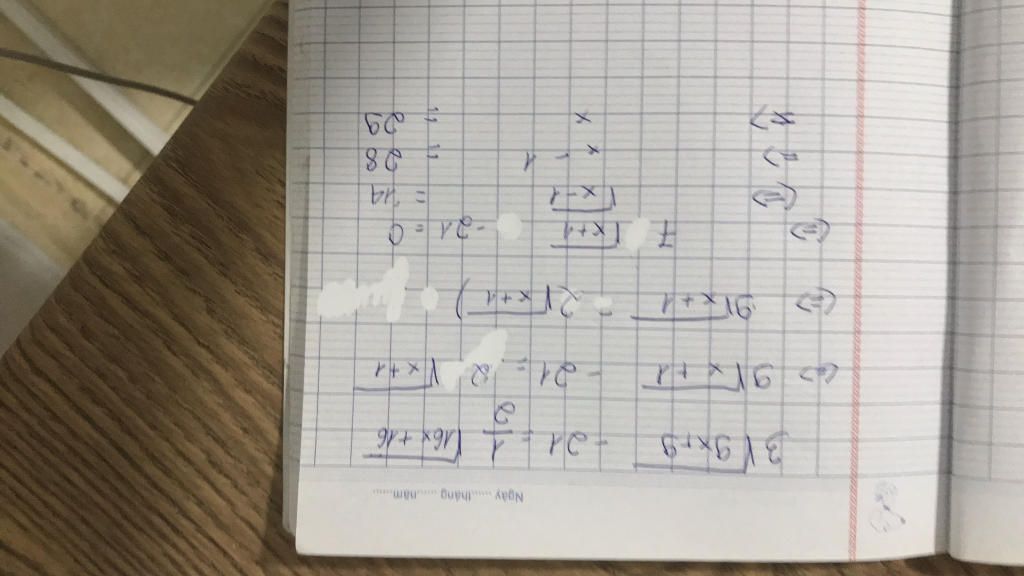 Ngày ...... tháng ...... năm ......
3√(9x+9) - 21 = 1/2 √(16x+16)
(=) 9√(x+1) - 21 = 2√(x+1)
(=) 9√(x+1) - 2√(x+1)
(=) 7√(x+1) - 21 = 0
(=) √(x-1) = 14
x - 1 = 28
x = 29